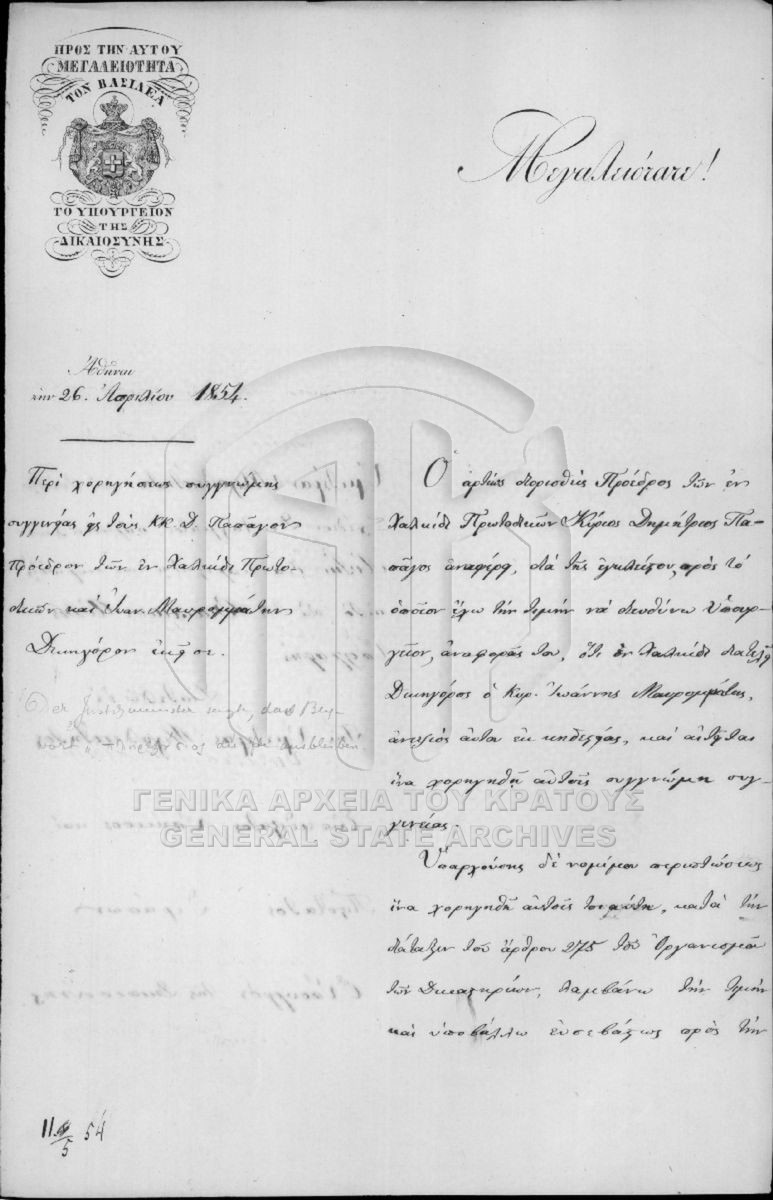 ΠΡΟΣ ΤΗΝ ΑΥΤΟΥ
ΜΕΓΑΛΕΙΟΤΗΤΑ
ΤΟΝ ΒΑΣΙΛΕΑ
ΤΟ ΥΠΟΥΡΓΕΙΟΝ
ΤΗΣ
ΔΙΚΑΙΟΣΥΝΗΣ
Μεγαλειότατε!
Ἀθῆναι
τὴν 26. Ἀπριλίου 1854.
Περὶ χορηγήσεως συγγνώμης
συγγενείας εἰς τοὺς ΚΚ. Δ. Πασᾶγον
πρόεδρον τῶν ἐν Χαλκίδι Πρωτο-
δικῶν καὶ Ἰωάν. Μαυρομμάτην
Δικηγόρον ἐκεῖσε.
Der Justizminister sagt, das
Ὁ ἀρτίως διορισθεὶς Πρόεδρος τῶν ἐν
Χαλκίδι Πρωτοδικῶν Κύριος Δημήτριος Πα-
σᾶγος ἀναφέρει, διὰ τῆς ἐγκλείστου, πρὸς τὸ
ὁποῖον ἔχω τὴν τιμὴν νὰ διευθύνω Ὑπουρ-
γεῖον, ἀναφορᾶς του, ὅτι ἐν Χαλκίδι διατελεῖ
Δικηγόρος ὁ Κύρ. Ἰωάννης Μαυρομμάτης,
ἀνεψιὸς αὐτοῦ ἐκ κηδεστείας, καὶ αἰτεῖται
ἵνα χορηγηθῇ αὐτοῖς συγγνώμη συγ-
γενείας.
Ὑπαρχούσης δὲ νομίμου περιπτώσεως
ἵνα χορηγηθῇ αὐτοῖς τοιαύτη, κατὰ τὴν
διάταξιν τοῦ ἄρθρου 275 τοῦ Ὀργανισμοῦ
τῶν Δικαστηρίων, λαμβάνω τὴν τιμὴν
καὶ ὑποβάλλω εὐσεβάστως πρὸς τὴν
ΓΕΝΙΚΑ ΑΡΧΕΙΑ ΤΟΥ ΚΡΑΤΟΥΣ
GENERAL STATE ARCHIVES
11/5 54